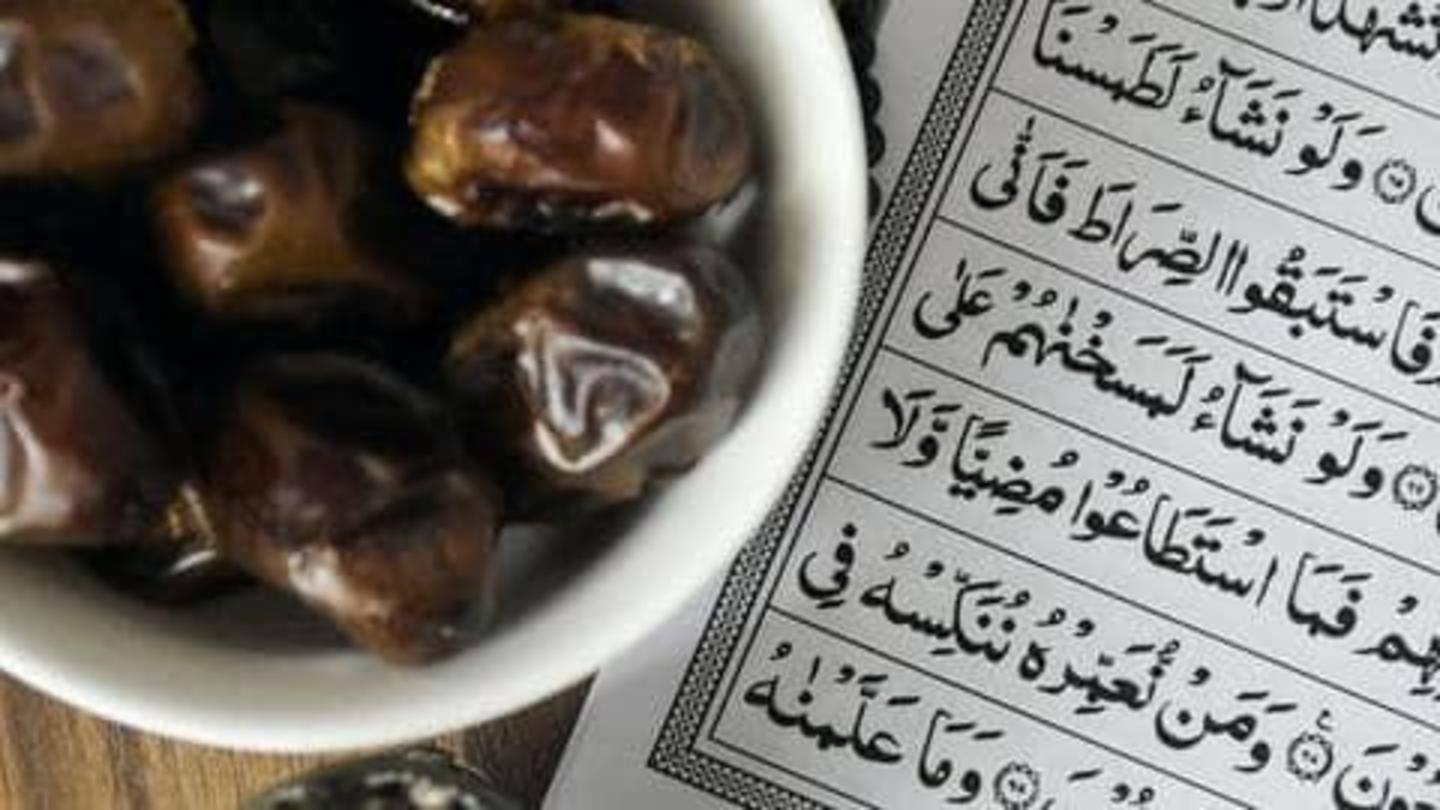 وَلَوْ نَشَآءُ لَطَمَسْنَا
فَاسْتَبَقُوا الصِّرَاطَ فَاَنّٰى
وَلَوْ نَشَآءُ لَمَسَخْنٰهُمْ عَلٰى
فَمَا اسْتَطَاعُوْا مُضِيًّا وَّلَا
وَمَنْ نُّعَمِّرْهُ نُنَكِّسْهُ فِى
وَمَا عَلَّمْنٰهُ